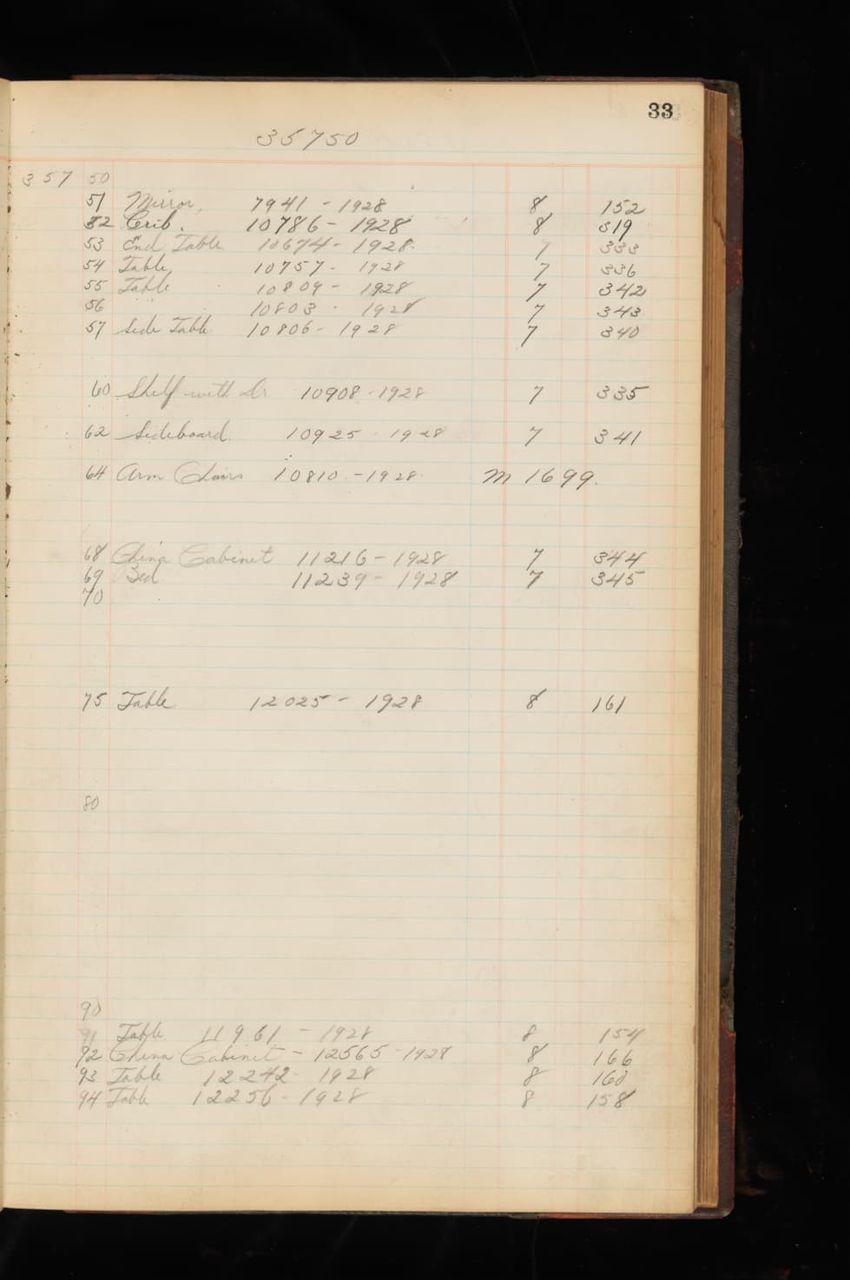 33
35750
357 50
51 Mirror. 7941 - 1928 8 152
52 Crib. 10786 - 1928 8 319
53 End Table 10674 - 1928. 7 333
54 Table 10757 - 1928 7 336
55 Table 10809 - 1928 7 342
56 " " 10803 - 1928 7 343
57 Side Table 10806 - 1928 7 340
60 Shelf with Dr 10908 - 1928 7 335
62 Sideboard. 10925 - 1928 7 341
64 Arm Chairs 10810 - 1928 M 1699.
68 China Cabinet 11216 - 1928 7 344
69 Bed 11239 - 1928 7 345
70
75 Table 12025 - 1928 8 161
80
90
91 Table 11961 - 1928 8 154
92 China Cabinet - 12565 - 1928 8 166
93 Table 12242 - 1928 8 160
94 Table 12256 - 1928 8 158